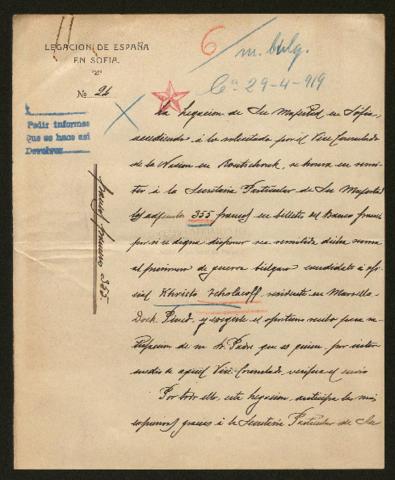 6 / m. bulg.
Cª 29-4-919
LEGACIÓN DE ESPAÑA
EN SOFIA
Nº 24
Pedir informes
Que se hace así
Devolver
francos franceses 355.
La Legación de Su Majestad en Sofia,
accediendo á lo solicitado por el Vice Consulado
de la Nación en Roustchouk, se honra en remi-
tir á la Secretaría Particular de Su Majestad
los adjuntos 355 francos en billetes del Banco francés
por si se digna disponer sea remitida dicha suma
al prisionero de guerra búlgaro candidato á ofi-
cial Khristo Tcholacoff, residente en Marsella-
Dock. Pinède y exigirle el oportuno recibo para sa-
tisfacción de su Sr. Padre que es quien, por inter-
medio de aquel Vice-Consulado, verifica el envío
Por todo ello, esta Legación, anticipa las más
expresivas gracias á la Secretaría Particular de Su